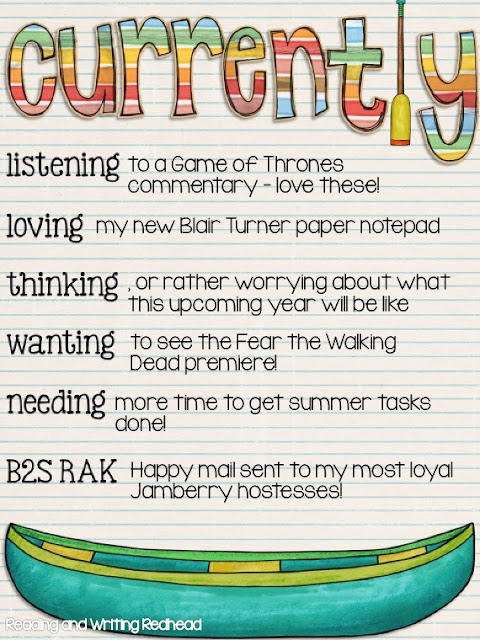 currently
listening to a Game of Thrones
commentary - love these!
loving my new Blair Turner paper notepad
thinking , or rather worrying about what
this upcoming year will be like
wanting to see the Fear the Walking
Dead premiere!
needing more time to get summer tasks
done!
B2S RAK Happy mail sent to my most loyal
Jamberry hostesses!
Reading and Writing Redhead